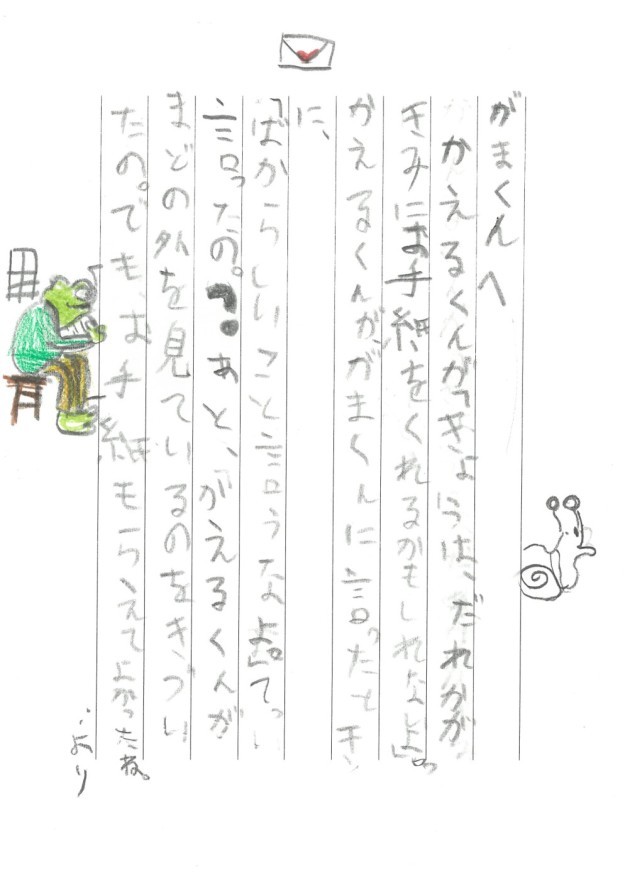 がまくんへ
かえるくんが「きょうは、だれかが
きみにお手紙をくれるかもしれなよ」っ
かえるくんが、がまくんに言ったとき
に、
「ばからしいこと言うなよ。」てっ
言ったの。？あと、がえるくんが
まどの外を見ているのをきづい
たの。でも、お手紙もらえてよかったね。
より